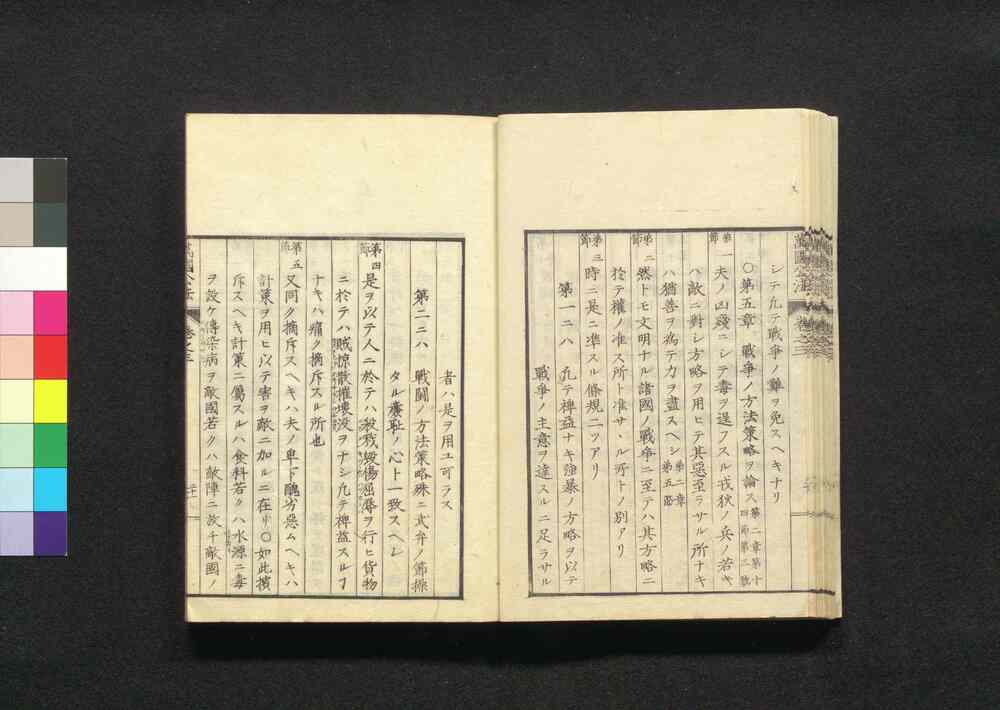 シテ凡テ戰爭ノ難ヲ免スヘキナリ
○第五章 戰爭ノ方法策略ヲ論ス 第二章第十四節第三號
第一節 夫ノ凶殘ニシテ毒ヲ逞フスル戎狄ノ兵ノ若キ
ハ敵ニ對シ方略ヲ用ヒテ其惡至ラサル所ナキ
ハ猶善ヲ為テ力ヲ盡スヘシ 第二章第五節
第二節 然トモ文明ナル諸國ノ戰爭ニ至テハ其方略ニ
於テ權ノ准ス所ト准サヽル所トノ別アリ
第三節 時ニ是ニ準スル條規二ツアリ
第一ニハ 凡テ裨益ナキ強暴ノ方略ヲ以テ
戰爭ノ主意ヲ達スルニ足ラサル
者ハ是ヲ用ユ可ラス
第二ニハ 戰鬪ノ方法策略殊ニ武弁ノ節操
タル廉耻ノ心ト一致スヘシ
第四節 是ヲ以テ人ニ於テハ殺戮毀傷屈辱ヲ行ヒ貨物
ニ於テハ賊掠散摧壊没ヲナシ凡テ裨益スルヿ
ナキハ痛ク擯斥スル所也
第五節 又同ク擯斥スヘキハ夫ノ卑下醜劣惡ムヘキハ
計策ヲ用ヒ以テ害ヲ敵ニ加ルニ在リ○如此擯
斥スヘキ計策ニ屬スルハ食料若クハ水源ニ毒
ヲ設ケ傳染病ヲ敵國若クハ敵陣ニ放チ敵國ノ
萬國公法 卷之三
萬國公法 卷之三